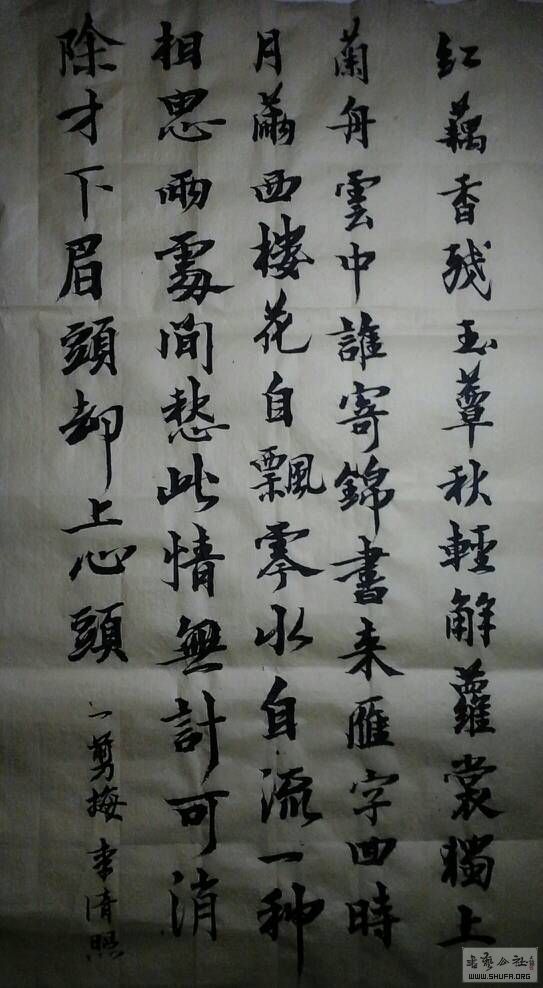 紅藕香残玉蕈秋輕解蘿裳獨上
蘭舟雲中誰寄錦書来雁字回時
月滿西楼花自飄零水自流一种
相思兩處間愁此情無計可消
除才下眉頭却上心頭
一剪梅 李清照
書藝公社
WWW.SHUFA.ORG